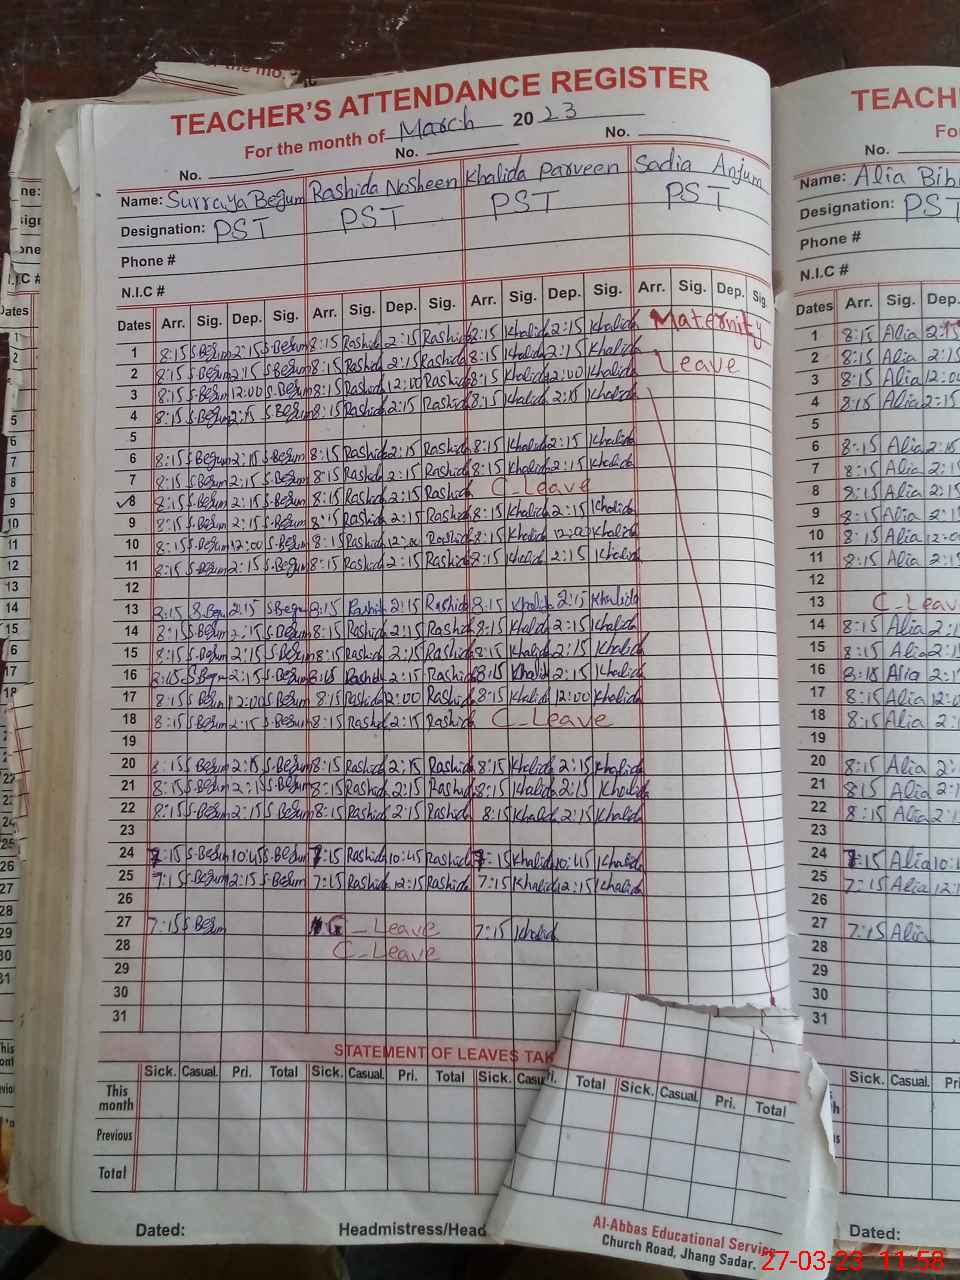 TEACHER'S ATTENDANCE REGISTER
For the month of March 2023
No. No. No.
Name: Surraya Begum Rashida Nosheen Khalida Parveen Sadia Anjum
Designation: PST PST PST PST
Phone #
N.I.C #
Dates Arr. Sig. Dep. Sig. Arr. Sig. Dep. Sig. Arr. Sig. Dep. Sig. Arr. Sig. Dep. Sig.
1 8:15 S.Begum 2:15 S.Begum 8:15 Rashida 2:15 Rashida 8:15 Khalida 2:15 Khalida Maternity
2 8:15 S.Begum 2:15 S.Begum 8:15 Rashida 2:15 Rashida 8:15 Khalida 2:15 Khalida Leave
3 8:15 S.Begum 12:00 S.Begum 8:15 Rashida 12:00 Rashida 8:15 Khalida 12:00 Khalida
4 8:15 S.Begum 2:15 S.Begum 8:15 Rashida 2:15 Rashida 8:15 Khalida 2:15 Khalida
5
6 8:15 S.Begum 2:15 S.Begum 8:15 Rashida 2:15 Rashida 8:15 Khalida 2:15 Khalida
7 8:15 S.Begum 2:15 S.Begum 8:15 Rashida 2:15 Rashida 8:15 Khalida 2:15 Khalida
8 8:15 S.Begum 2:15 S.Begum 8:15 Rashida 2:15 Rashida C_Leave
9 8:15 S.Begum 2:15 S.Begum 8:15 Rashida 2:15 Rashida 8:15 Khalida 2:15 Khalida
10 8:15 S.Begum 12:00 S.Begum 8:15 Rashida 12:00 Rashida 8:15 Khalida 12:00 Khalida
11 8:15 S.Begum 2:15 S.Begum 8:15 Rashida 2:15 Rashida 8:15 Khalida 2:15 Khalida
12
13 8:15 S.Begum 2:15 S.Begum 8:15 Rashida 2:15 Rashida 8:15 Khalida 2:15 Khalida
14 8:15 S.Begum 2:15 S.Begum 8:15 Rashida 2:15 Rashida 8:15 Khalida 2:15 Khalida
15 8:15 S.Begum 2:15 S.Begum 8:15 Rashida 2:15 Rashida 8:15 Khalida 2:15 Khalida
16 8:15 S.Begum 2:15 S.Begum 8:15 Rashida 2:15 Rashida 8:15 Khalida 2:15 Khalida
17 8:15 S.Begum 12:00 S.Begum 8:15 Rashida 12:00 Rashida 8:15 Khalida 12:00 Khalida
18 8:15 S.Begum 2:15 S.Begum 8:15 Rashida 2:15 Rashida C_Leave
19
20 8:15 S.Begum 2:15 S.Begum 8:15 Rashida 2:15 Rashida 8:15 Khalida 2:15 Khalida
21 8:15 S.Begum 2:15 S.Begum 8:15 Rashida 2:15 Rashida 8:15 Khalida 2:15 Khalida
22 8:15 S.Begum 2:15 S.Begum 8:15 Rashida 2:15 Rashida 8:15 Khalida 2:15 Khalida
23
24 7:15 S.Begum 10:45 S.Begum 7:15 Rashida 10:45 Rashida 7:15 Khalida 10:45 Khalida
25 7:15 S.Begum 12:15 S.Begum 7:15 Rashida 12:15 Rashida 7:15 Khalida 12:15 Khalida
26
27 7:15 S.Begum C_Leave 7:15 Khalida
28 C_Leave
29
30
31
STATEMENT OF LEAVES TAK
Sick. Casual. Pri. Total Sick. Casual. Pri. Total Sick. Casu Pri. Total Sick. Casual. Pri. Total
This month
Previous
Total
Dated: Headmistress/Head
Al-Abbas Educational Service
Church Road, Jhang Sadar.
TEACH
Fo
No.
Name: Alia Bibi
Designation: PST
Phone #
N.I.C #
Dates Arr. Sig. Dep.
1 8:15 Alia 2:15
2 8:15 Alia 2:15
3 8:15 Alia 12:00
4 8:15 Alia 2:15
5
6 8:15 Alia 2:15
7 8:15 Alia 2:15
8 8:15 Alia 2:15
9 8:15 Alia 2:15
10 8:15 Alia 12:00
11 8:15 Alia 2:15
12
13 C_Leave
14 8:15 Alia 2:15
15 8:15 Alia 2:15
16 8:15 Alia 2:15
17 8:15 Alia 12:00
18 8:15 Alia 2:15
19
20 8:15 Alia 2:
21 8:15 Alia 2:1
22 8:15 Alia 2:15
23
24 7:15 Alia 10:4
25 7:15 Alia 12:1
26
27 7:15 Alia
28
29
30
31
Sick. Casual. Pri
Dated:
27-03-23 11:58